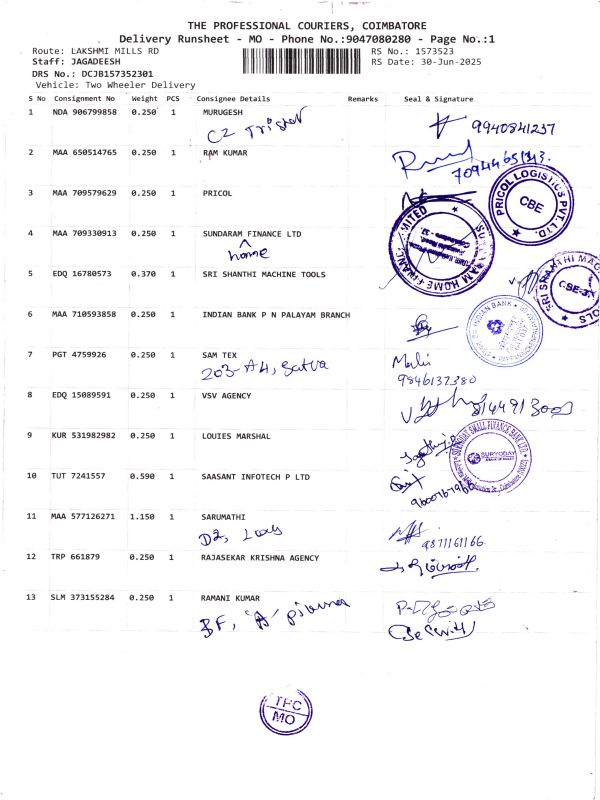 THE PROFESSIONAL COURIERS, COIMBATORE
Delivery Runsheet - MO - Phone No.:9047080280 - Page No.:1
Route: LAKSHMI MILLS RD RS No.: 1573523
Staff: JAGADEESH RS Date: 30-Jun-2025
DRS No.: DCJB157352301
Vehicle: Two Wheeler Delivery
S No Consignment No Weight PCS Consignee Details Remarks Seal & Signature
1 NDA 906799858 0.250 1 MURUGESH
C2 Tristar 9940841237
2 MAA 650514765 0.250 1 RAM KUMAR
3 MAA 709579629 0.250 1 PRICOL
PRICOL LOGISTICS PVT. LTD. CBE
4 MAA 709330913 0.250 1 SUNDARAM FINANCE LTD
home
5 EDQ 16780573 0.370 1 SRI SHANTHI MACHINE TOOLS
6 MAA 710593858 0.250 1 INDIAN BANK P N PALAYAM BRANCH
INDIAN BANK
7 PGT 4759926 0.250 1 SAM TEX
203-A4, Satva 9846137380
8 EDQ 15089591 0.250 1 VSV AGENCY
9 KUR 531982982 0.250 1 LOUIES MARSHAL
SURYODAY SMALL FINANCE BANK LTD.
SURYODAY
10 TUT 7241557 0.590 1 SAASANT INFOTECH P LTD
11 MAA 577126271 1.150 1 SARUMATHI
D2, 9871161166
12 TRP 661879 0.250 1 RAJASEKAR KRISHNA AGENCY
13 SLM 373155284 0.250 1 RAMANI KUMAR
BF, "A"
Security
TPC
MO